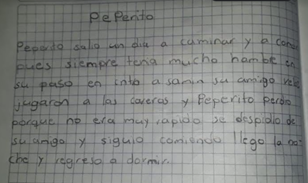 PePerito
Pepado salio un dia a caminar y a comer
pues siempre tena mucha hambe en
su paso en into a samin su amigo
jugaron a las caveras y Peperito perdio
porque no era muy rapido se despidio de
su amigo y siguio comiendo llego la no
che y regreso a dormir.